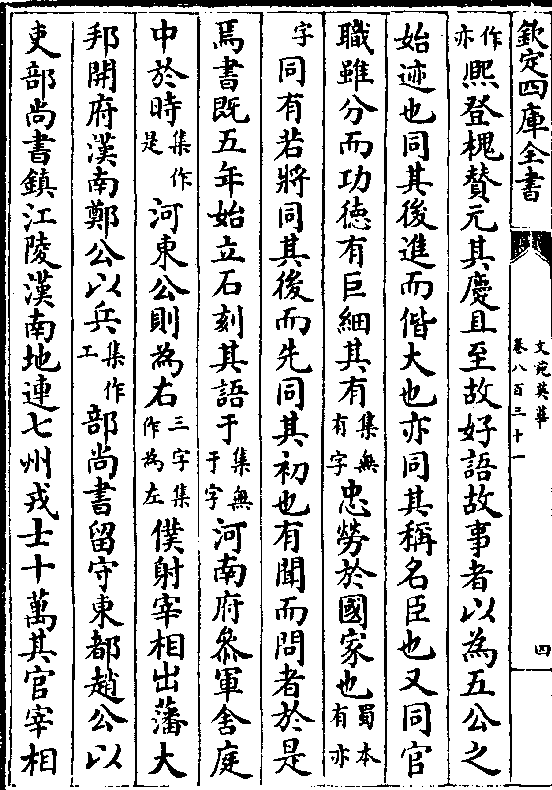 欽定四庫全書
文苑英華
卷八百三十一
四
作亦熈登槐賛元其慶且至故好語故事者以為五公之
始迹也同其後進而偕大也亦同其稱名臣也又同官
職雖分而功徳有巨細其有集無有字忠勞於國家也蜀本有亦
字同有若將同其後而先同其初也有聞而問者於是
焉書既五年始立石刻其語于集無于字河南府叅軍舍庭
中於時集作是河東公則為右三字集作為左僕射宰相出藩大
邦開府漢南鄭公以兵集作工部尚書留守東都趙公以
吏部尚書鎮江陵漢南地連七州戎士十萬其官宰相